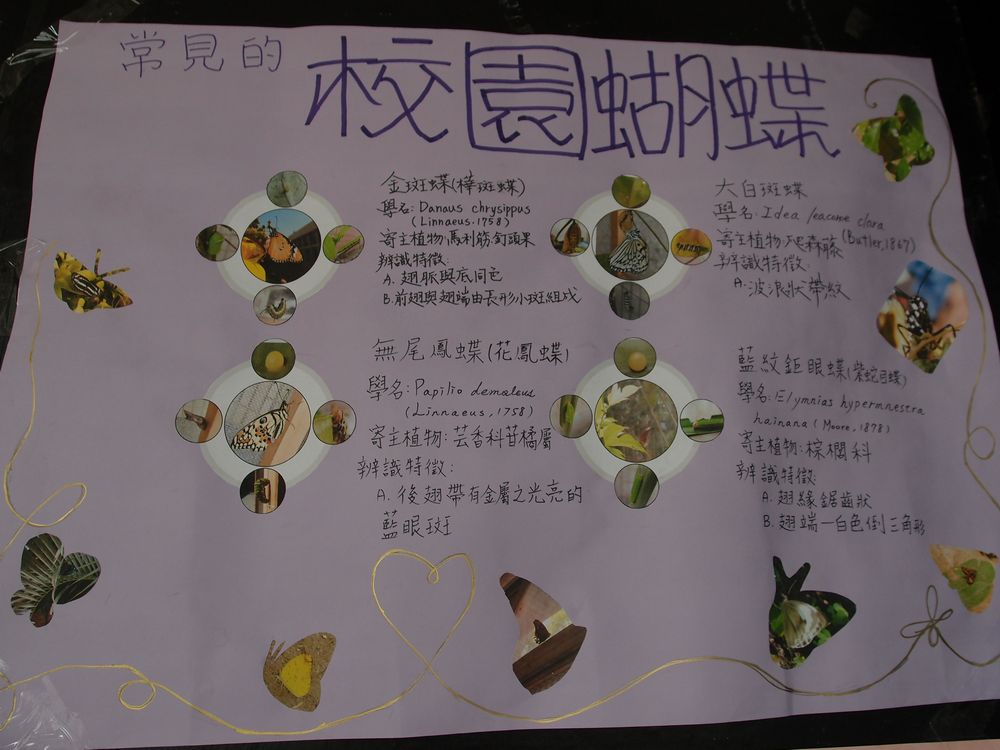 常見的
校園蝴蝶
金斑蝶(樺斑蝶)
學名: Danaus chrysippus
(Linnaeus.1758)
寄主植物:馬利筋.釘頭果
辨識特徵:
A. 翅脈與底同色
B. 前翅與翅端由長形小斑組成
大白斑蝶
學名: Idea leacome clara
(Butler,1867)
寄主植物:爬森藤
辨識特徵:
A. 波浪狀帶紋
無尾鳳蝶(花鳳蝶)
學名: Papilio demaleus
(Linnaeus, 1758)
寄主植物: 芸香科苷橘屬
辨識特徵:
A. 後翅帶有金屬之光亮的
藍眼斑
藍紋鉅眼蝶(紫蛇目蝶)
學名: Elymnias hypermnestra
hainana (Moore, 1878)
寄主植物: 棕櫚科
辨識特徵:
A. 翅緣鋸齒狀
B. 翅端一白色倒三角形